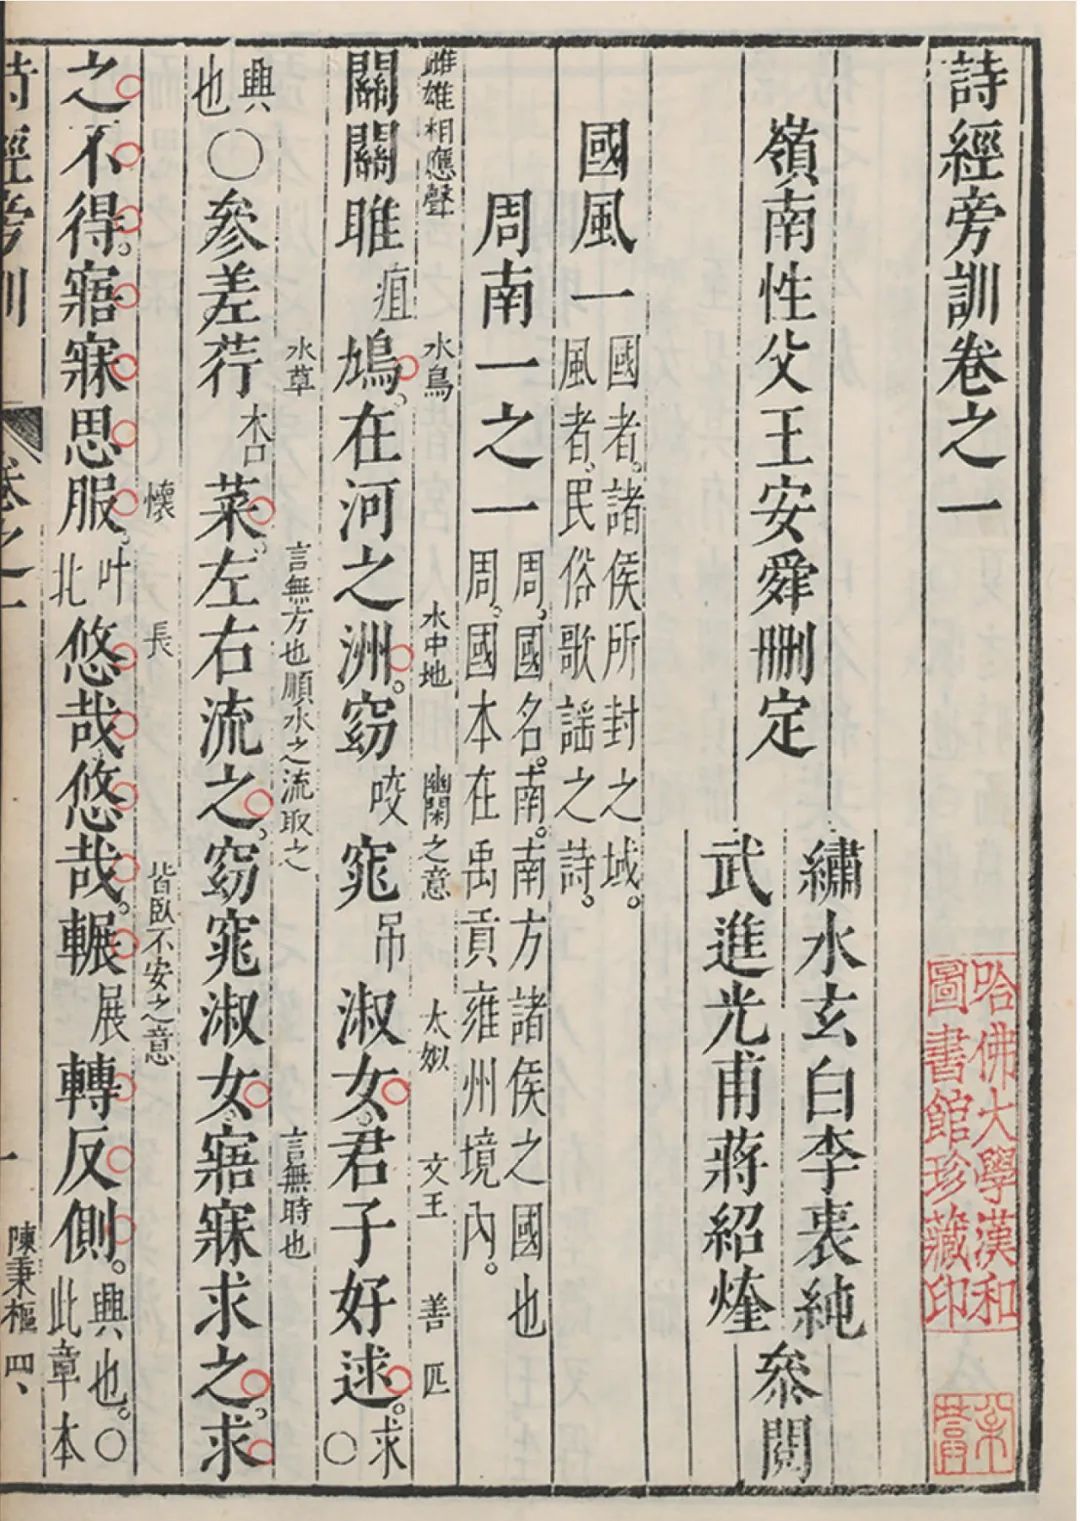 詩經旁訓卷之一
哈佛大學漢和
圖書館珍藏印
嶺南性父王安舜刪定
繡水玄白李衷純
武進光甫蔣紹煃
參閱
國風一
國者。諸侯所封之域。
風者、民俗歌謡之詩。
周南一之一
周。國名。南。南方諸侯之國也
周。國本在禹貢雍州境內。
雌雄相應聲 水鳥 水中地 幽閑之意 太姒 文王 善 匹
關關雎疽鳩。在河之洲。窈咬窕吊淑女。君子好逑。求〇
水草 言無方也順水之流取之 言無時也
興也〇參差荇杏菜。左右流之。窈窕淑女。寤寐求之。求
懷 長 皆臥不安之意
之不得。寤寐思服。叶北悠哉悠哉。輾展轉反側。興也。〇此章本
詩經旁訓 卷之一 一 陳秉樞 四、